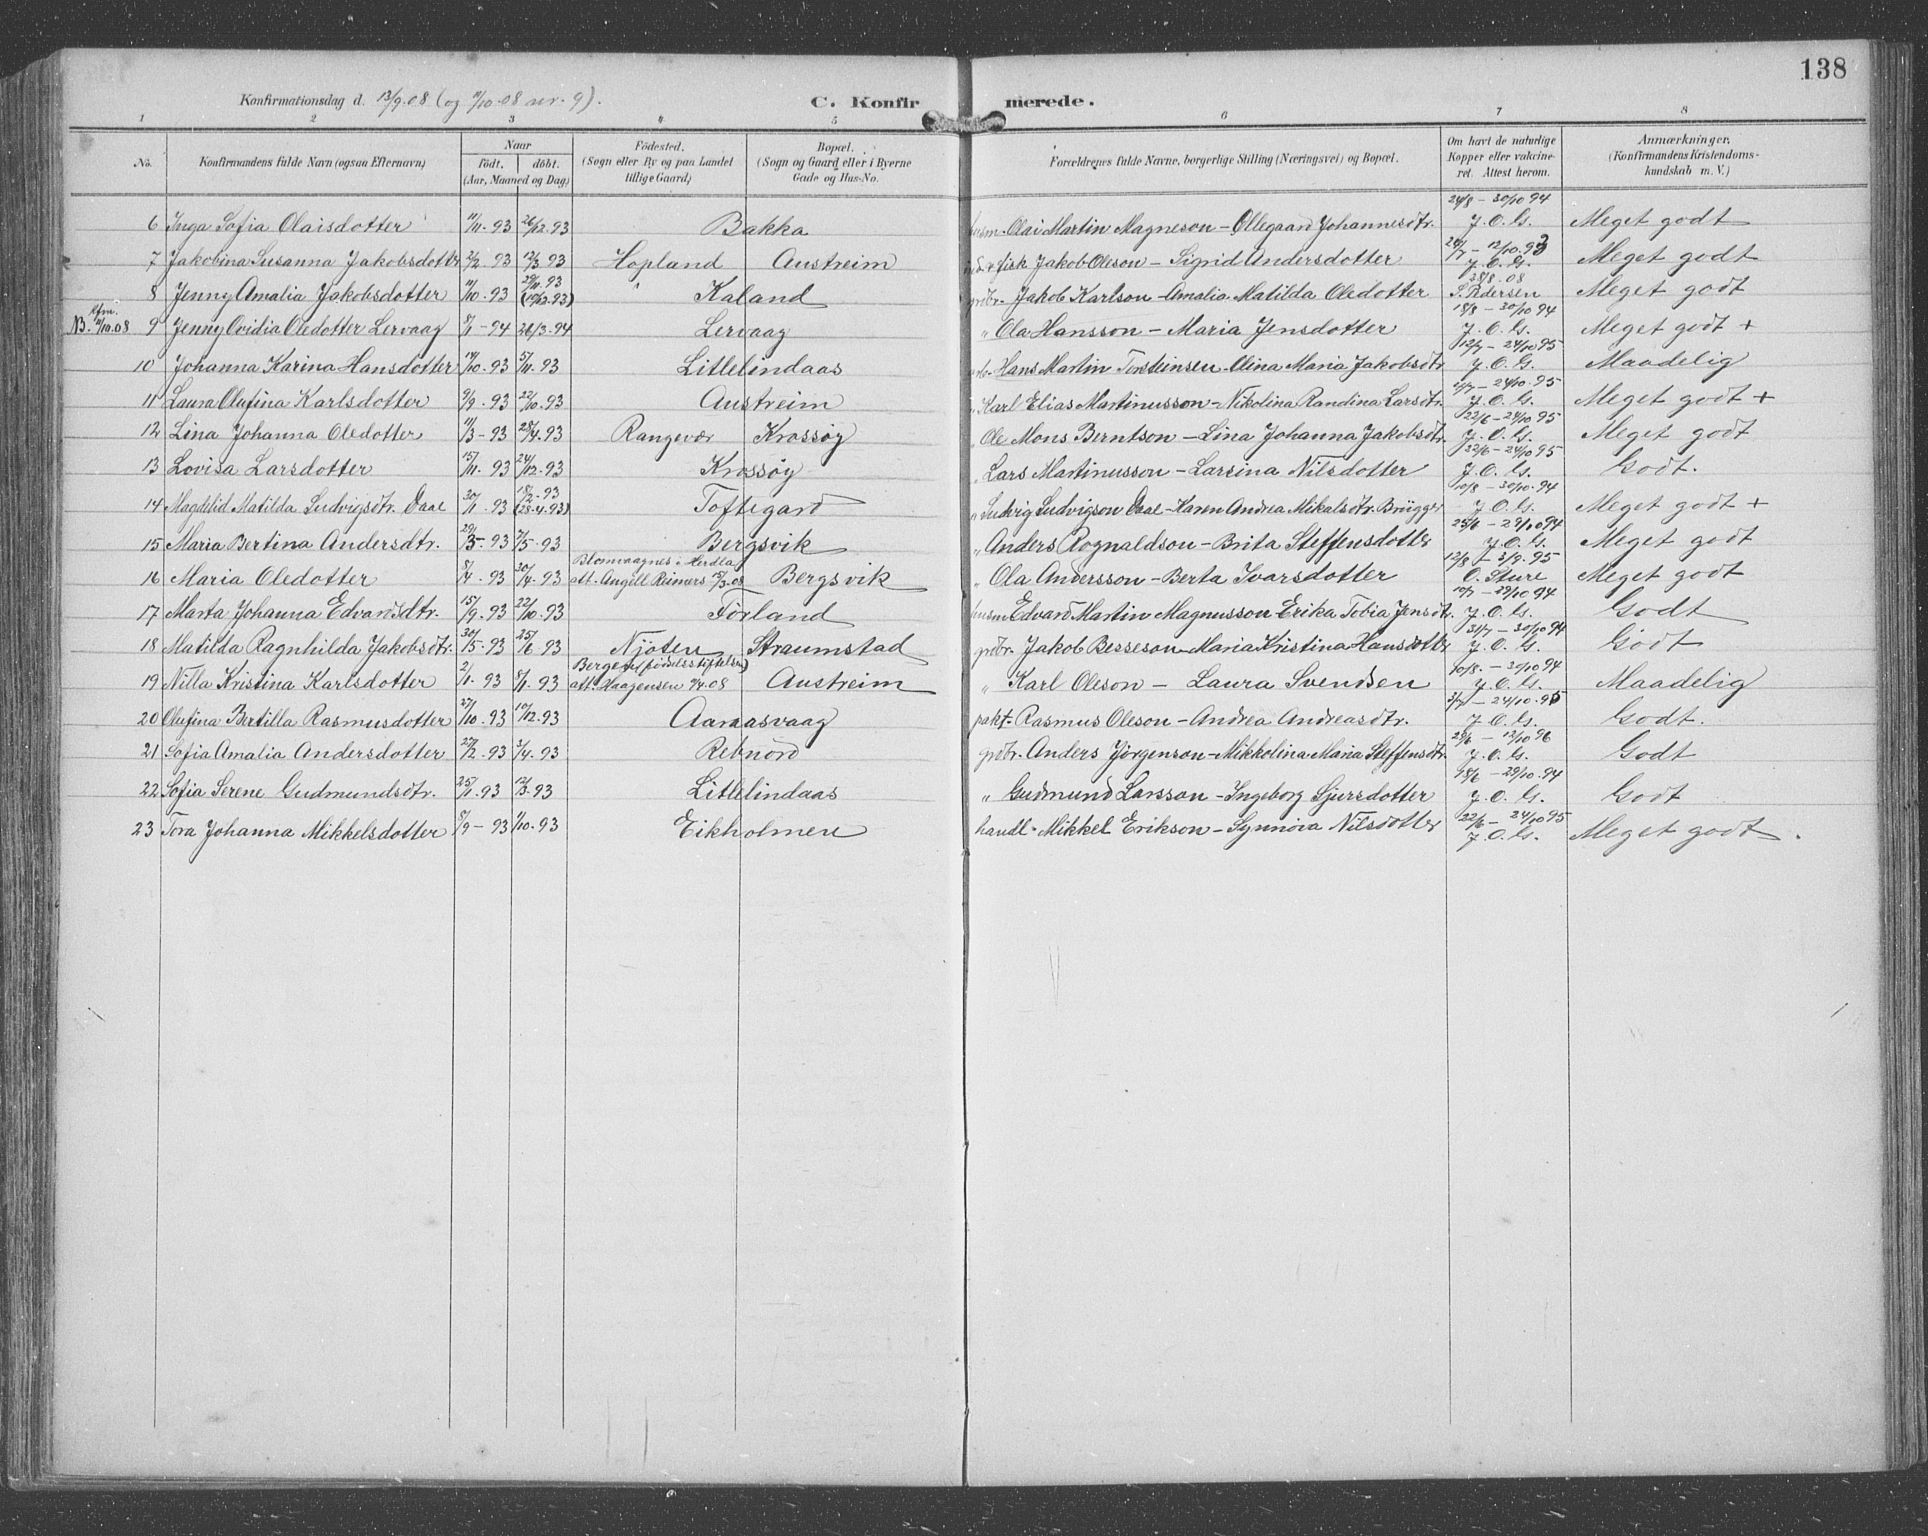 138
Konfirmationsdag d. 13/9.08 (og 11/10.08 nr. 9). C. Konfir merede.
1 2 3 4 5 6 7 8
No. Konfirmandens fulde Navn (ogsaa Efternavn) Naar Født. døbt. (Aar, Maaned og Dag) Fødested. (Sogn eller By og paa Landet tillige Gaard) Bopæl. (Sogn og Gaard eller i Byerne Gade og Hus-No. Forældrenes fulde Navne, borgerlige Stilling (Næringsvei) og Bopæl. Om havt de naturlige Kopper eller vakcineret. Attest herom. Anmærkninger. (Konfirmandens Kristendomskundskab m. V.)
6 Inga Sofia Olaisdotter 11/11.93 26/12.93 Bakka husm. Olai Martin Magneson - Ollegaard Johannesdtr. 24/8 - 30/10 94 J. O. G. Meget godt
7 Jakobina Susanna Jakobsdotter 2/2.93 12/3.93 Hopland Austreim fisk Jakob Oleson - Sigrid Andersdotter J. O. G. Meget godt
8 Jenny Amalia Jakobsdotter 11/10.93 29/11.93 (19/12.93) " Kaland grdbr. Jakob Karlson - Amalia Matilda Oledotter 28/8.08 S. Pedersen Meget godt
NB. Kfm. 11/10.08 9 Jenny Ovidia Oledotter Lervaag 8/1 - 94 26/3.94 Lervaag " Ola Hansson - Maria Jensdotter 18/8 - 30/10 94 J. O. G. Meget godt +
10 Johanna Karina Hansdotter 14/10.93 5/11.93 Litlelindaas Hans Martin Torsteinsen - Olina Maria Jakobsdtr 12/7 - 24/10 95 J. O. G. Maadelig
11 Laura Olufina Karlsdotter 9/9.93 22/10.93 Austreim " Karl Elias Martinusson - Nikolina Randina Larsdtr. 24/10.95 J. O. G. Meget godt +
12 Lina Johanna Oledotter 11/3 - 93 28/4.93 Rangevær Krossøy " Ole Mons Berntson - Lina Johanna Jakobsdtr. 22/6 - 24/10 95 J. O. G. Meget godt
13 Lovisa Larsdotter 15/11.93 24/12.93 Krossøy " Lars Martinusson - Larsina Nilsdotter 22/6 - 24/10 95 J. O. G. Godt.
14 Magdelid Matilda Ludvigsdtr. Daae 30/1.93 18/2.93 (23.4.93) Toftegard " Ludvig Ludvigson Daae - Karen Andrea Mikalsdtr. Brügger 10/8 - 30/10.94 J. O. G. Meget godt +
15 Maria Bertina Andersdtr. 7/5.93 Bergsvik " Anders Rognaldson - Brita Steffensdotter 25/6 - 29/10 94 J. O. G. Meget godt
16 Maria Oledotter 8/4.93 30/4.93 Blomvaagnes i Herdla att. Angell Reimers 12/3.08 Bergsvik " Ola Andersson - Berta Ivarsdotter 12/8 - 3/9.95 O. Sture Meget godt
17 Marta Johanna Edvardsdtr. 15/9.93 22/10.93 Førland husm Edvard Martin Magnusson Erika Tobia Jensdtr. 10/7 - 29/10 94 J. O. G. Godt
18 Matilda Ragnhilda Jakobsdtr. 30/5.93 25/6.93 Njøten Straumstad grdbr. Jakob Besseson - Maria Kristina Hansdotter 31/7 - 30/10 94 J. O. G. Godt
19 Nilla Kristina Karlsdotter 2/1.93 8/1.93 Bergen (fødselsstiftelsen) att. Haagensen 9/4.08 Austreim " Karl Oleson - Laura Svendsen 10/8. - 30/10 94 J. O. G. Maadelig
20 Olufina Bertilla Rasmusdotter 27/10.93 17/12.93 Aamasvaag pakt. Rasmus Oleson - Andrea Andreasdtr. 3/7 - 24/10.95 J. O. G. Godt.
21 Sofia Amalia Andersdotter 27/2.93 3/4.93 Rebnord grdbr. Anders Jørgenson - Mikkolina Maria Steffensdtr. 29/6 - 12/10 96 J. O. G. Godt
22 Sofia Serene Gudmundsdtr. 25/1.93 12/3.93 Litlelindaas " Gudmund Larsson - Ingeborg Sjursdotter 18/6 - 29/10.94 J. O. G. Godt
23 Tora Johanna Mikkelsdotter 8/9 - 93 1/10.93 Eikholmen handl. Mikkel Erikson - Synnøva Nilsdotter 22/6 - 24/10 95 J. O. G. Meget godt.